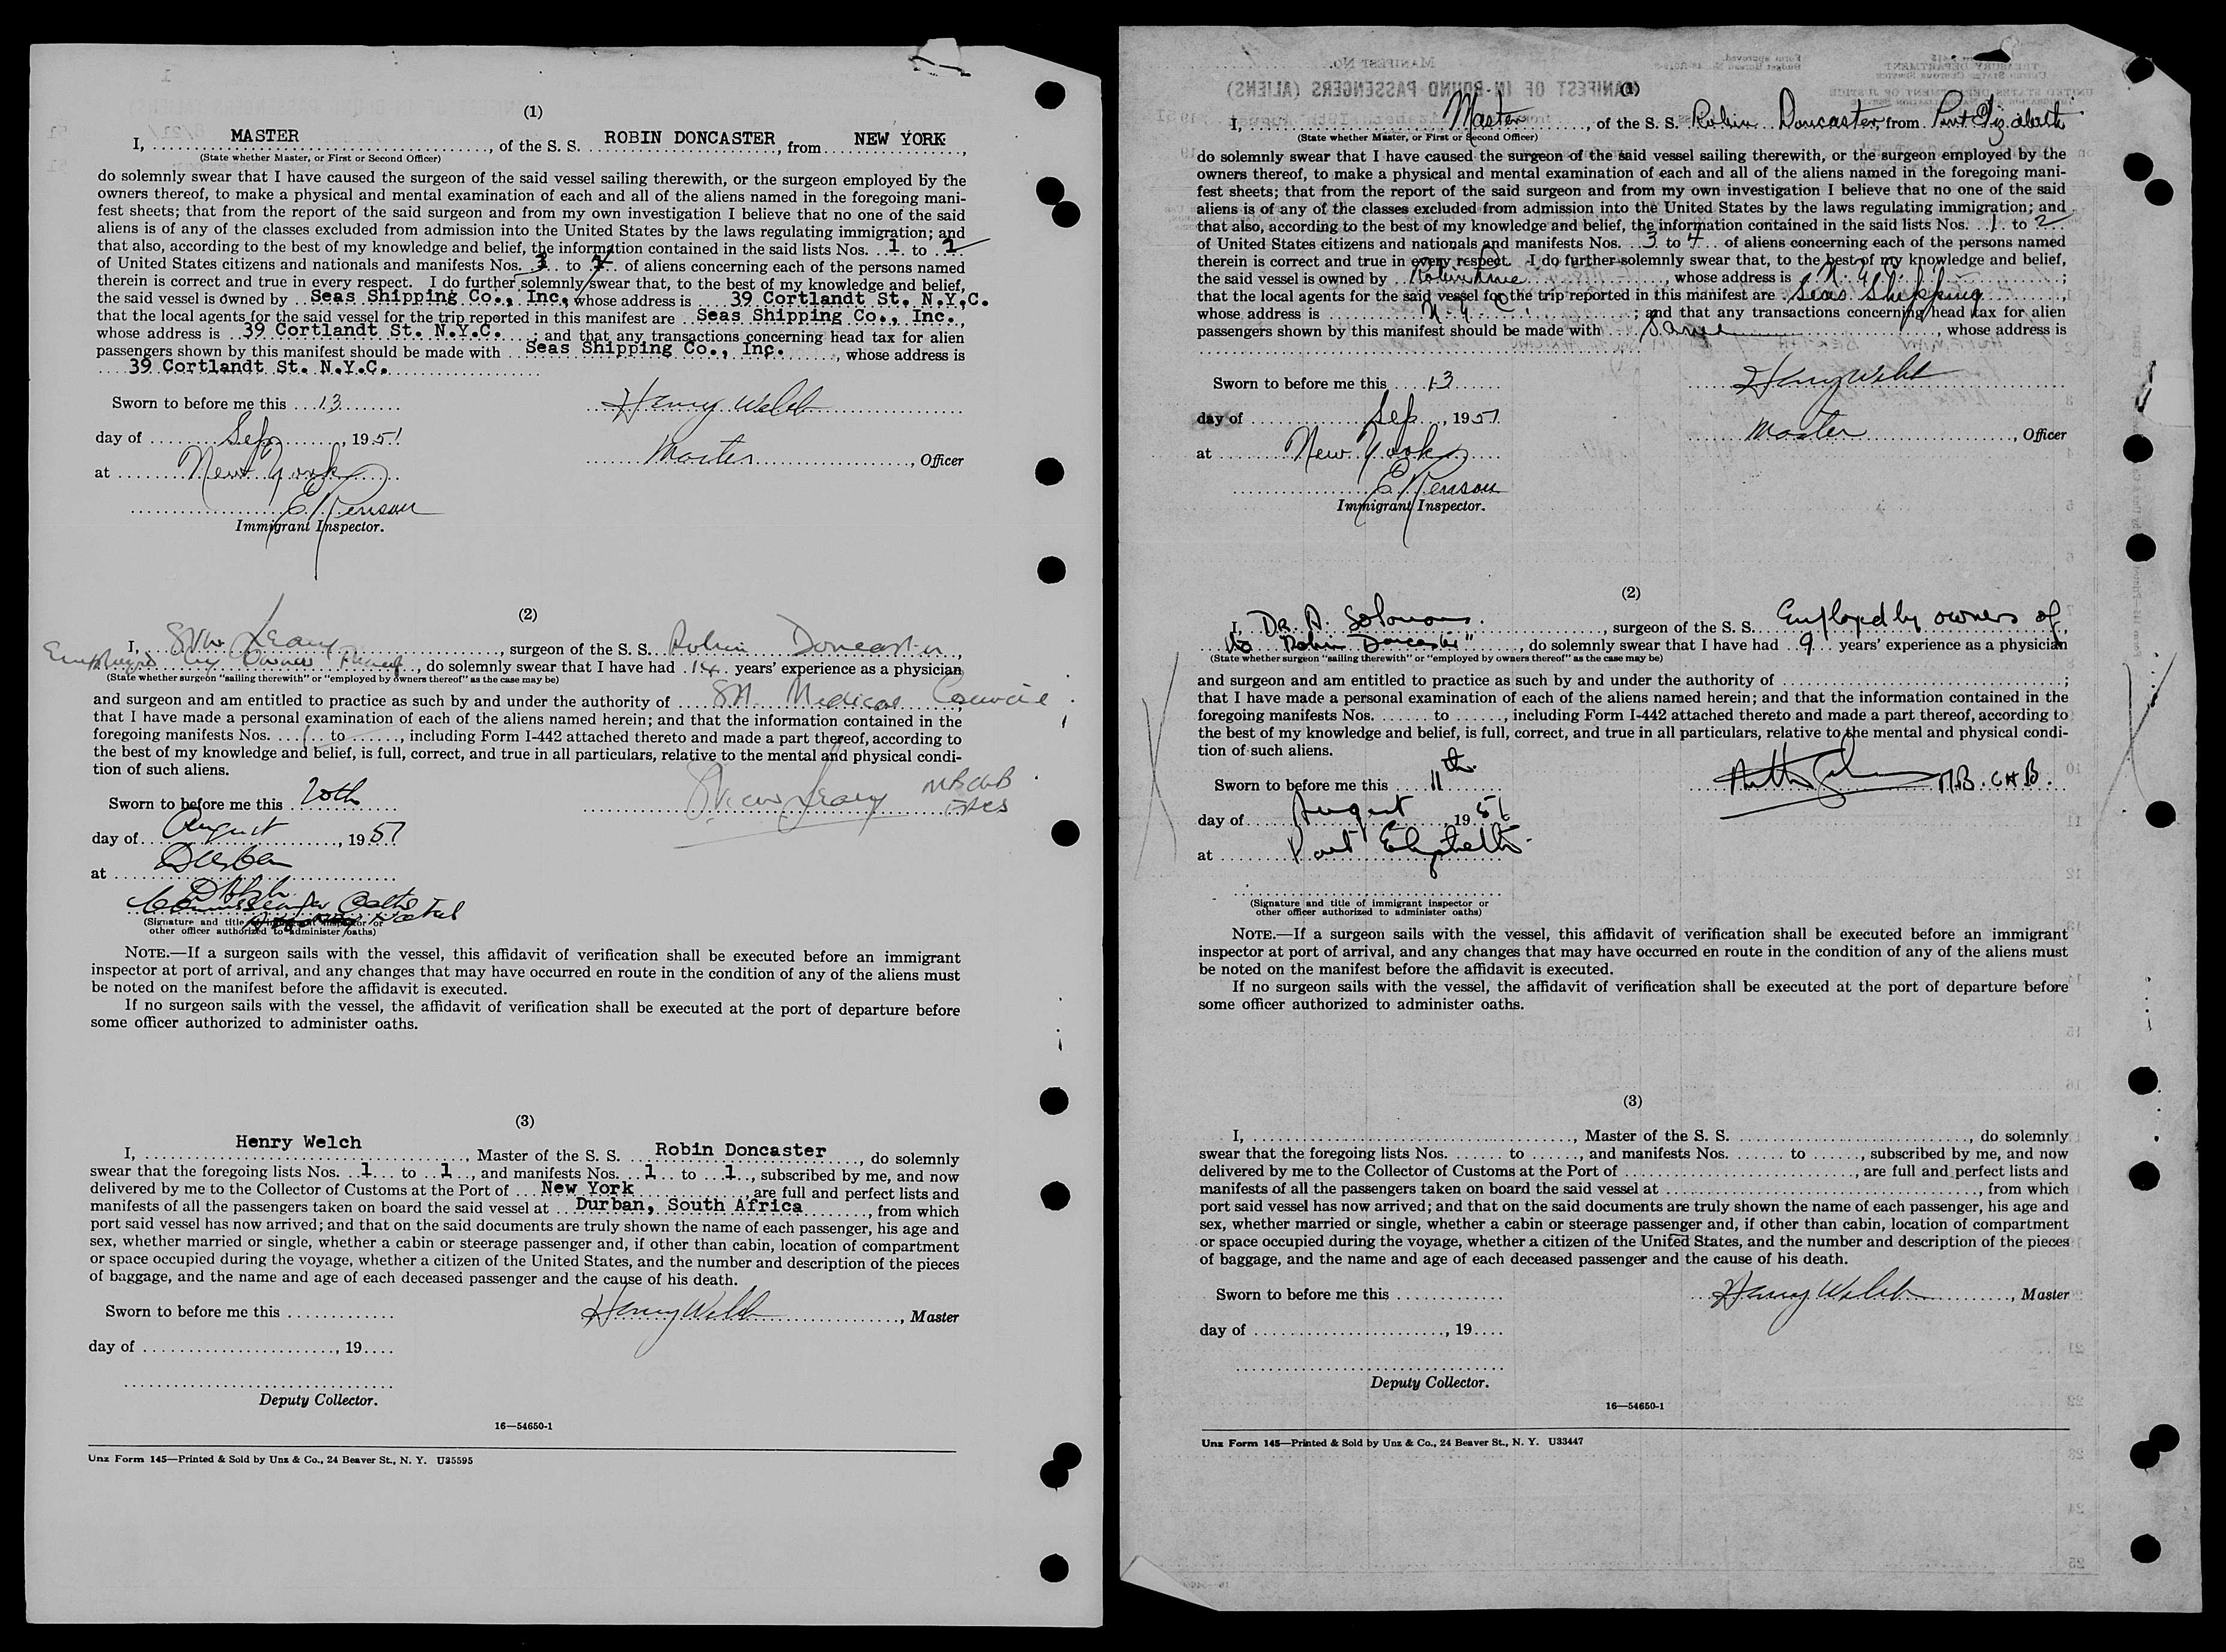 (1)
I, MASTER, of the S. S. ROBIN DONCASTER, from NEW YORK,
(State whether Master, or First or Second Officer)
do solemnly swear that I have caused the surgeon of the said vessel sailing therewith, or the surgeon employed by the
owners thereof, to make a physical and mental examination of each and all of the aliens named in the foregoing mani-
fest sheets; that from the report of the said surgeon and from my own investigation I believe that no one of the said
aliens is of any of the classes excluded from admission into the United States by the laws regulating immigration; and
that also, according to the best of my knowledge and belief, the information contained in the said lists Nos. 1 to 2
of United States citizens and nationals and manifests Nos. 3 to 4 of aliens concerning each of the persons named
therein is correct and true in every respect. I do further solemnly swear that, to the best of my knowledge and belief,
the said vessel is owned by Seas Shipping Co., Inc, whose address is 39 Cortlandt St. N.Y.C.
that the local agents for the said vessel for the trip reported in this manifest are Seas Shipping Co., Inc.,
whose address is 39 Cortlandt St. N.Y.C. ; and that any transactions concerning head tax for alien
passengers shown by this manifest should be made with Seas Shipping Co., Inc. , whose address is
39 Cortlandt St. N.Y.C.
Sworn to before me this 13
Henry Welch
day of Sep, 1951
Master, Officer
at New York
Immigrant Inspector.
(2)
I, , surgeon of the S. S. Robin Doncaster,
Employed by Owner , do solemnly swear that I have had 14 years' experience as a physician
(State whether surgeon "sailing therewith" or "employed by owners thereof" as the case may be)
and surgeon and am entitled to practice as such by and under the authority of SA Medical Council
that I have made a personal examination of each of the aliens named herein; and that the information contained in the
foregoing manifests Nos. 1 to , including Form I-442 attached thereto and made a part thereof, according to
the best of my knowledge and belief, is full, correct, and true in all particulars, relative to the mental and physical condi-
tion of such aliens.
Sworn to before me this 20th
day of August, 1951
at Durban
Commissioner Oaths
(Signature and title of immigrant inspector or
other officer authorized to administer oaths)
NOTE.—If a surgeon sails with the vessel, this affidavit of verification shall be executed before an immigrant
inspector at port of arrival, and any changes that may have occurred en route in the condition of any of the aliens must
be noted on the manifest before the affidavit is executed.
If no surgeon sails with the vessel, the affidavit of verification shall be executed at the port of departure before
some officer authorized to administer oaths.
(3)
I, Henry Welch, Master of the S. S. Robin Doncaster, do solemnly
swear that the foregoing lists Nos. 1 to 1, and manifests Nos. 1 to 1, subscribed by me, and now
delivered by me to the Collector of Customs at the Port of New York, are full and perfect lists and
manifests of all the passengers taken on board the said vessel at Durban, South Africa, from which
port said vessel has now arrived; and that on the said documents are truly shown the name of each passenger, his age and
sex, whether married or single, whether a cabin or steerage passenger and, if other than cabin, location of compartment
or space occupied during the voyage, whether a citizen of the United States, and the number and description of the pieces
of baggage, and the name and age of each deceased passenger and the cause of his death.
Sworn to before me this
Henry Welch, Master
day of , 19
Deputy Collector.
16—54650-1
Unz Form 145—Printed & Sold by Unz & Co., 24 Beaver St., N. Y. U35595
MANIFEST OF IN-BOUND PASSENGERS (ALIENS)
(1)
I, Master, of the S. S. Robin Doncaster, from Port Elizabeth
(State whether Master, or First or Second Officer)
do solemnly swear that I have caused the surgeon of the said vessel sailing therewith, or the surgeon employed by the
owners thereof, to make a physical and mental examination of each and all of the aliens named in the foregoing mani-
fest sheets; that from the report of the said surgeon and from my own investigation I believe that no one of the said
aliens is of any of the classes excluded from admission into the United States by the laws regulating immigration; and
that also, according to the best of my knowledge and belief, the information contained in the said lists Nos. 1 to 2
of United States citizens and nationals and manifests Nos. 3 to 4 of aliens concerning each of the persons named
therein is correct and true in every respect. I do further solemnly swear that, to the best of my knowledge and belief,
the said vessel is owned by Robin Line, whose address is N.Y.C. ;
that the local agents for the said vessel for the trip reported in this manifest are Seas Shipping,
whose address is N.Y.C. ; and that any transactions concerning head tax for alien
passengers shown by this manifest should be made with Same, whose address is
Sworn to before me this 13
Henry Welch
day of Sep, 1951
Master, Officer
at New York
Immigrant Inspector.
(2)
I, Dr. A. Solomons., surgeon of the S. S. Employed by owners of,
"Robin Doncaster", do solemnly swear that I have had 9 years' experience as a physician
(State whether surgeon "sailing therewith" or "employed by owners thereof" as the case may be)
and surgeon and am entitled to practice as such by and under the authority of ;
that I have made a personal examination of each of the aliens named herein; and that the information contained in the
foregoing manifests Nos. to , including Form I-442 attached thereto and made a part thereof, according to
the best of my knowledge and belief, is full, correct, and true in all particulars, relative to the mental and physical condi-
tion of such aliens.
Sworn to before me this 11th
M.B. CH.B.
day of August 1951
at Port Elizabeth
(Signature and title of immigrant inspector or
other officer authorized to administer oaths)
NOTE.—If a surgeon sails with the vessel, this affidavit of verification shall be executed before an immigrant
inspector at port of arrival, and any changes that may have occurred en route in the condition of any of the aliens must
be noted on the manifest before the affidavit is executed.
If no surgeon sails with the vessel, the affidavit of verification shall be executed at the port of departure before
some officer authorized to administer oaths.
(3)
I, , Master of the S. S. , do solemnly
swear that the foregoing lists Nos. to , and manifests Nos. to , subscribed by me, and now
delivered by me to the Collector of Customs at the Port of , are full and perfect lists and
manifests of all the passengers taken on board the said vessel at , from which
port said vessel has now arrived; and that on the said documents are truly shown the name of each passenger, his age and
sex, whether married or single, whether a cabin or steerage passenger and, if other than cabin, location of compartment
or space occupied during the voyage, whether a citizen of the United States, and the number and description of the pieces
of baggage, and the name and age of each deceased passenger and the cause of his death.
Sworn to before me this
Henry Welch, Master
day of , 19
Deputy Collector.
16—54650-1
Unz Form 145—Printed & Sold by Unz & Co., 24 Beaver St., N. Y. U33447